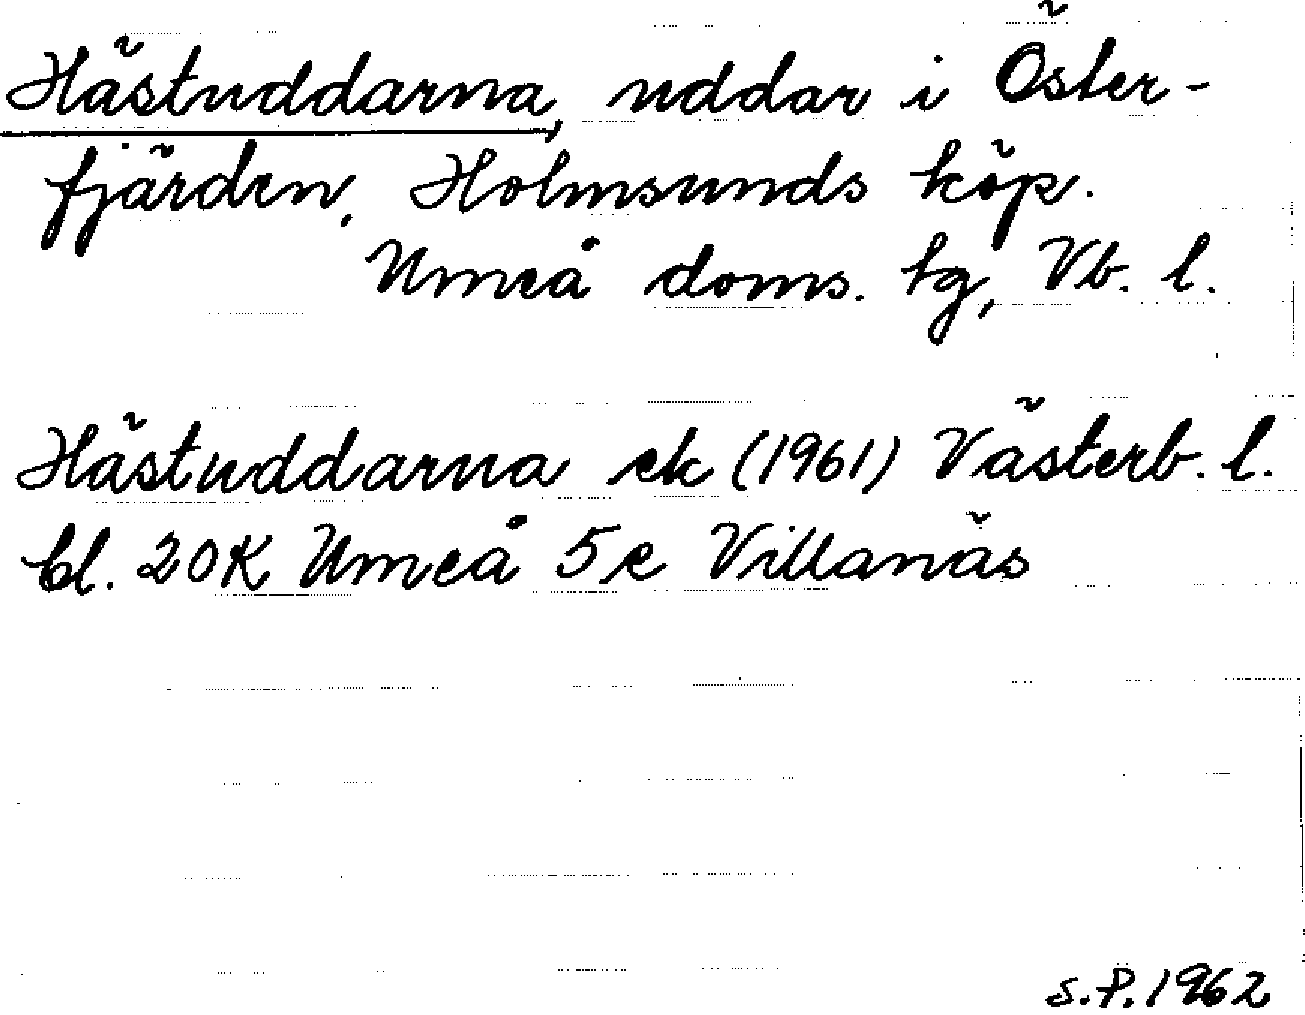 Hästuddarna, uddar i Öster-
fjärden, Holmsunds köp.
Umeå doms. tg, Vb. l.
Hästuddarna ek (1961) Västerb. l.
bl. 20K Umeå 5e Villanäs
S.P. 1962